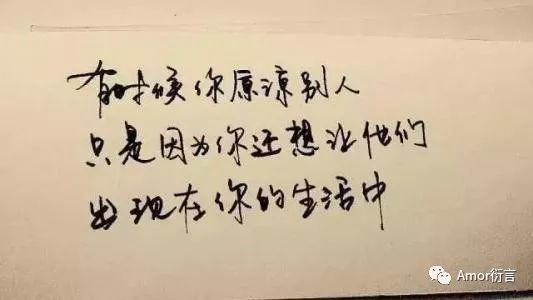 有时候你原谅别人
只是因为你还想让他们
出现在你的生活中
Amor衍言